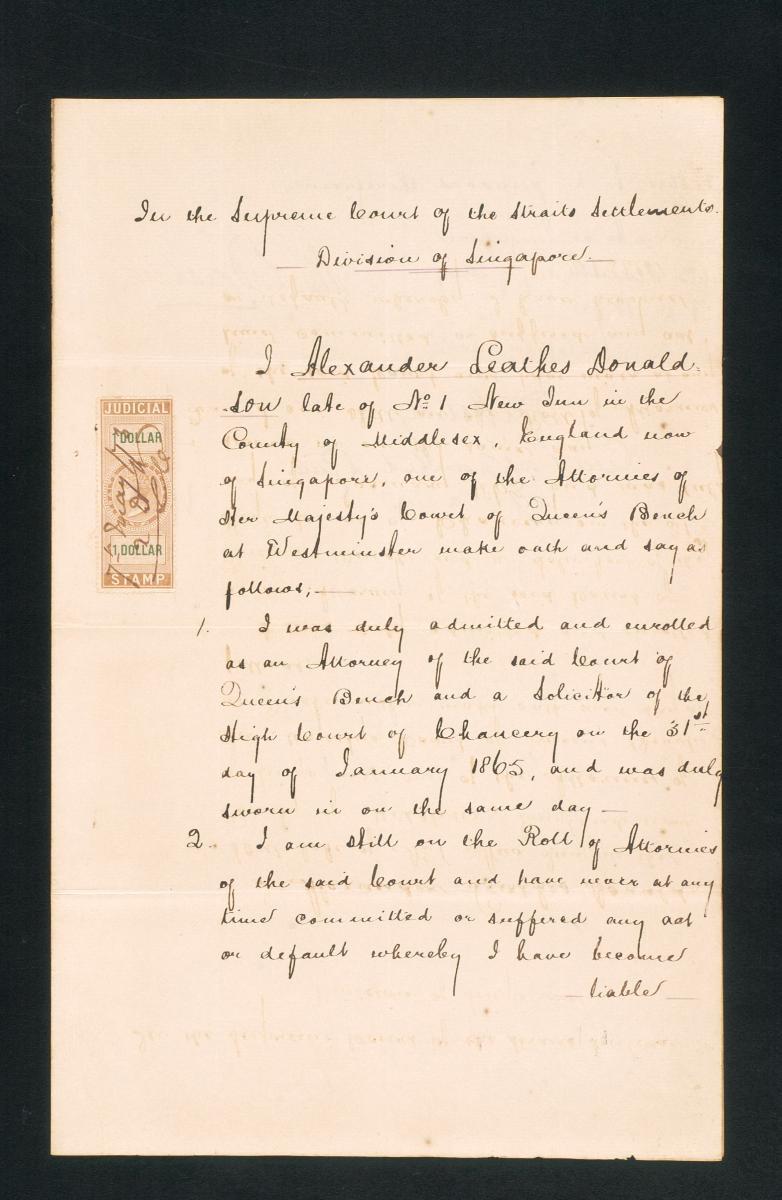 In the Supreme Court of the Straits Settlements.
Division of Singapore.
I Alexander Leathes Donald-
son late of No 1 New Inn in the
County of Middlesex, England now
of Singapore, one of the Attornies of
Her Majesty's Court of Queen's Bench
at Westminster make oath and say as
follows,—
1. I was duly admitted and enrolled
as an Attorney of the said Court of
Queen's Bench and a Solicitor of the
High Court of Chancery on the 31st
day of January 1865, and was duly
sworn in on the same day —
2. I am still on the Roll of Attornies
of the said Court and have never at any
time committed or suffered any act
or default whereby I have become
— liable —
JUDICIAL
1 DOLLAR
1 DOLLAR
STAMP